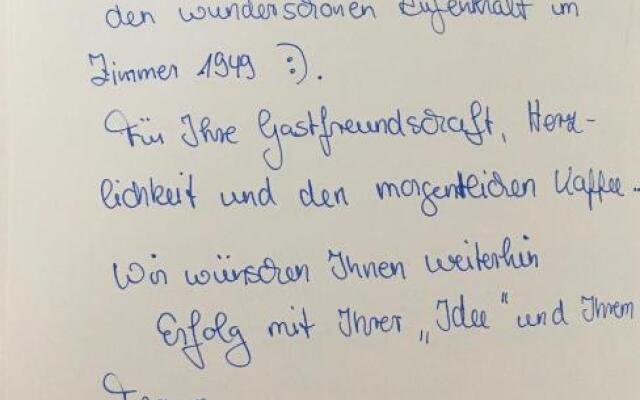 den wunderschönen Aufenthalt im
Zimmer 1949 :).
Für Ihre Gastfreundschaft, Herz-
lichkeit und den morgentlichen Kaffee.
Wir wünschen Ihnen weiterhin
Erfolg mit Ihrer „Idee" und Ihrem